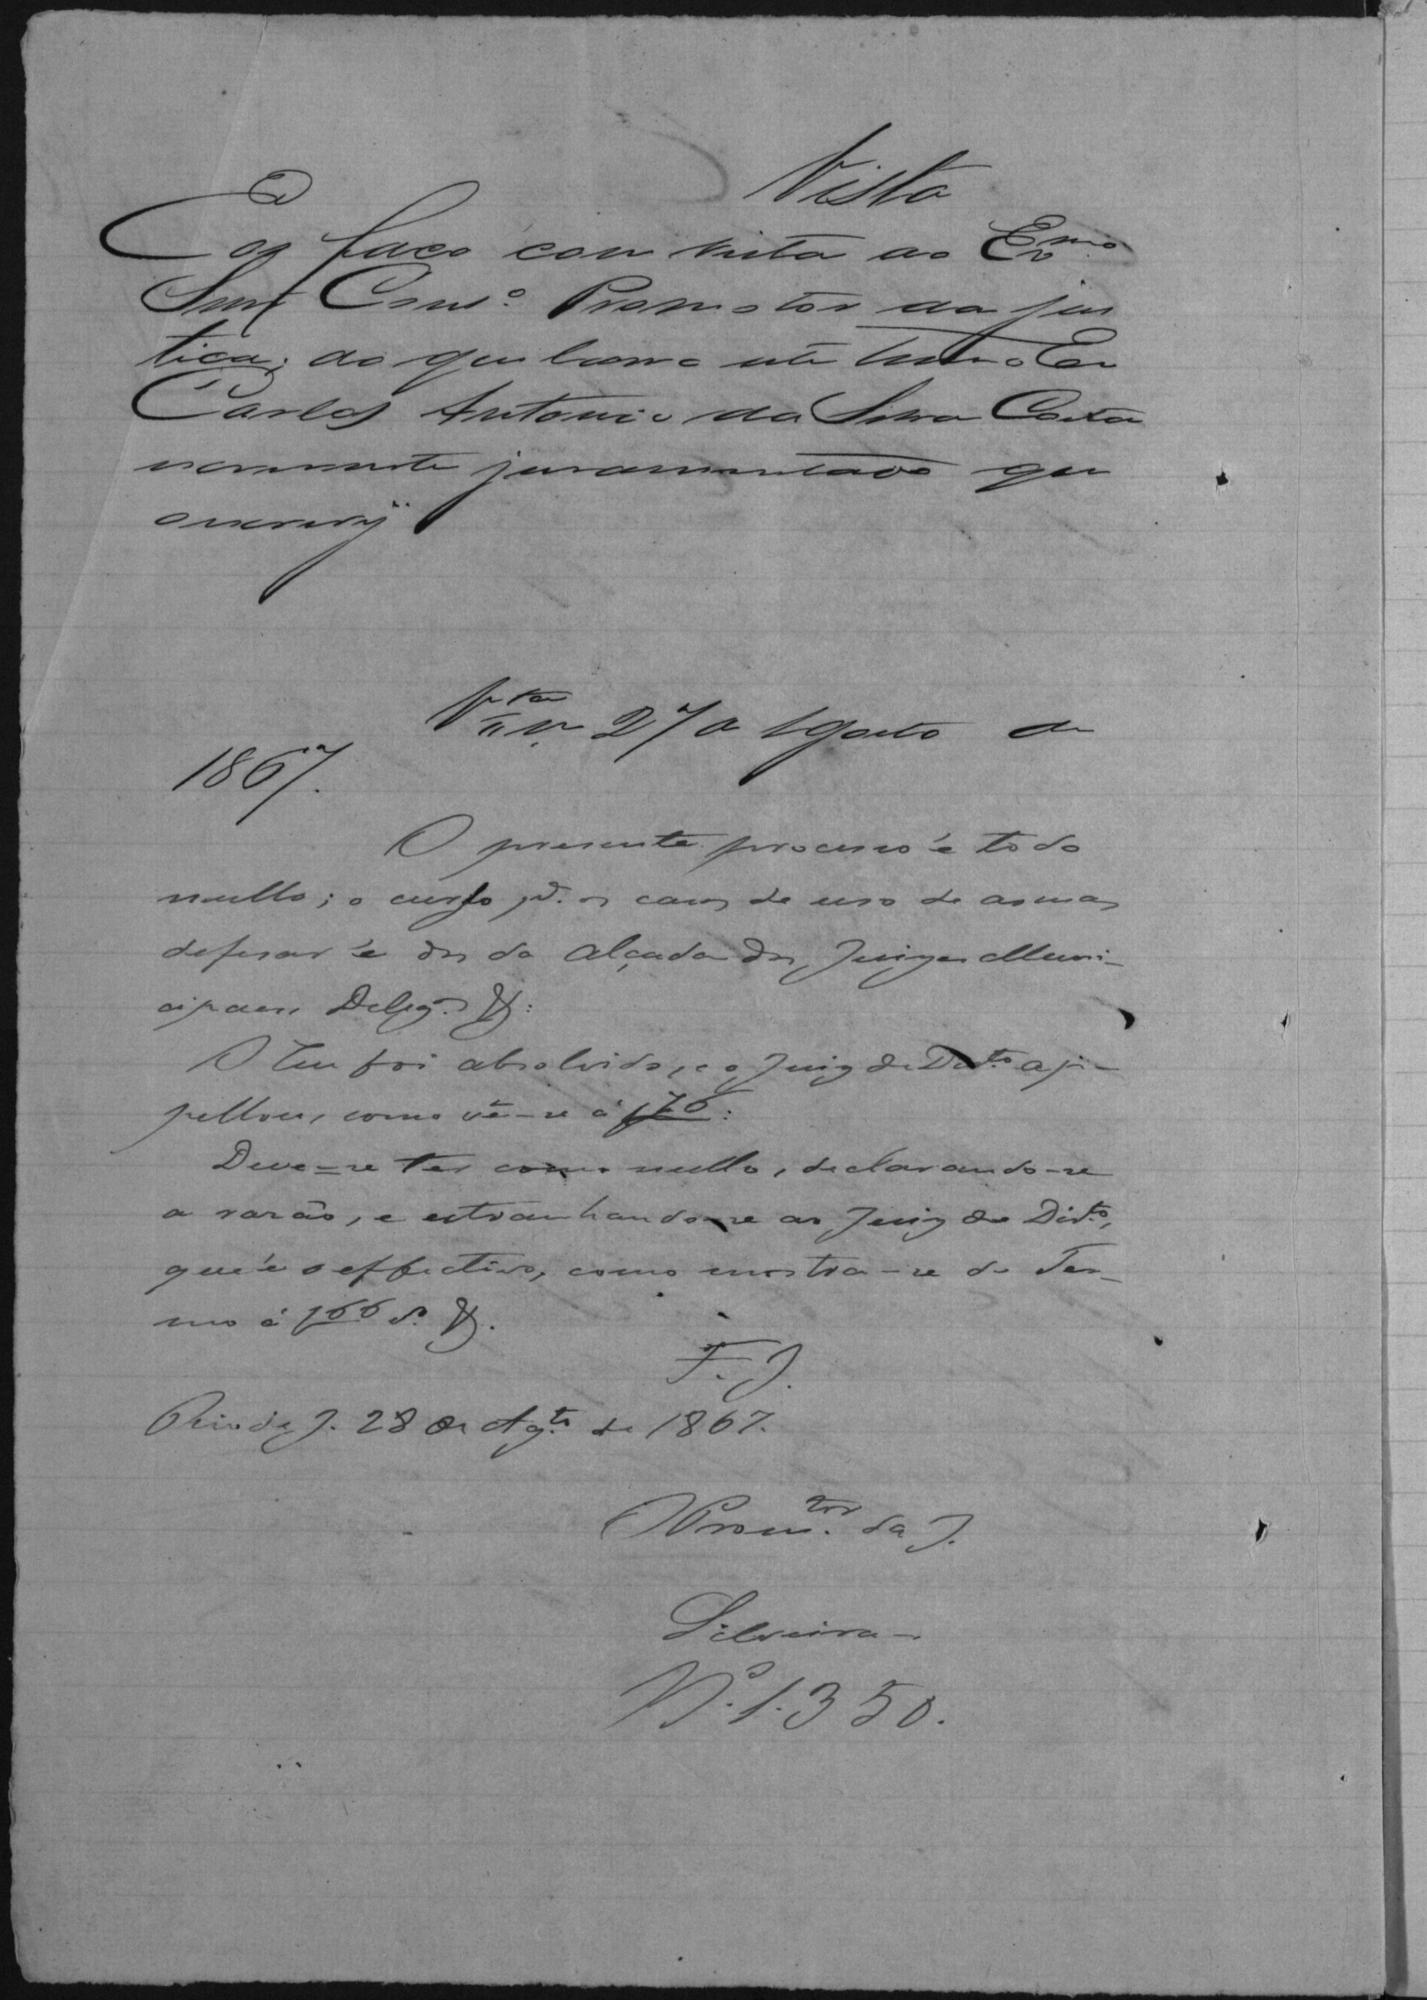 Vista
E os faço com vista ao Exmo
Snr Conso Promotor da jus
tiça; do que lavro este termo Eu
Carlos Antonio da Silva Costa
juramentado que
escrevy
Vta em 27 de Agosto de
1867.
O presente processo é todo
nullo; o curso pa. os casos de uso de armas
defesas é dos da Alçada dos Juizes Muni-
cipaes, Delegos &:
O Reu foi absolvido, e o Juiz de Dirto ap-
pellou, como vê-se á f76:
Deve-se ter como nullo, declarando-se
a rasão, e estranhando-se ao Juiz de Dirto,
que é o effectivo, como mostra-se do Ter-
mo á f66 &.
F. J.
Rio de J. 28 de Agto de 1867.
O Promtor da J.
Silveira
No. 1.350.